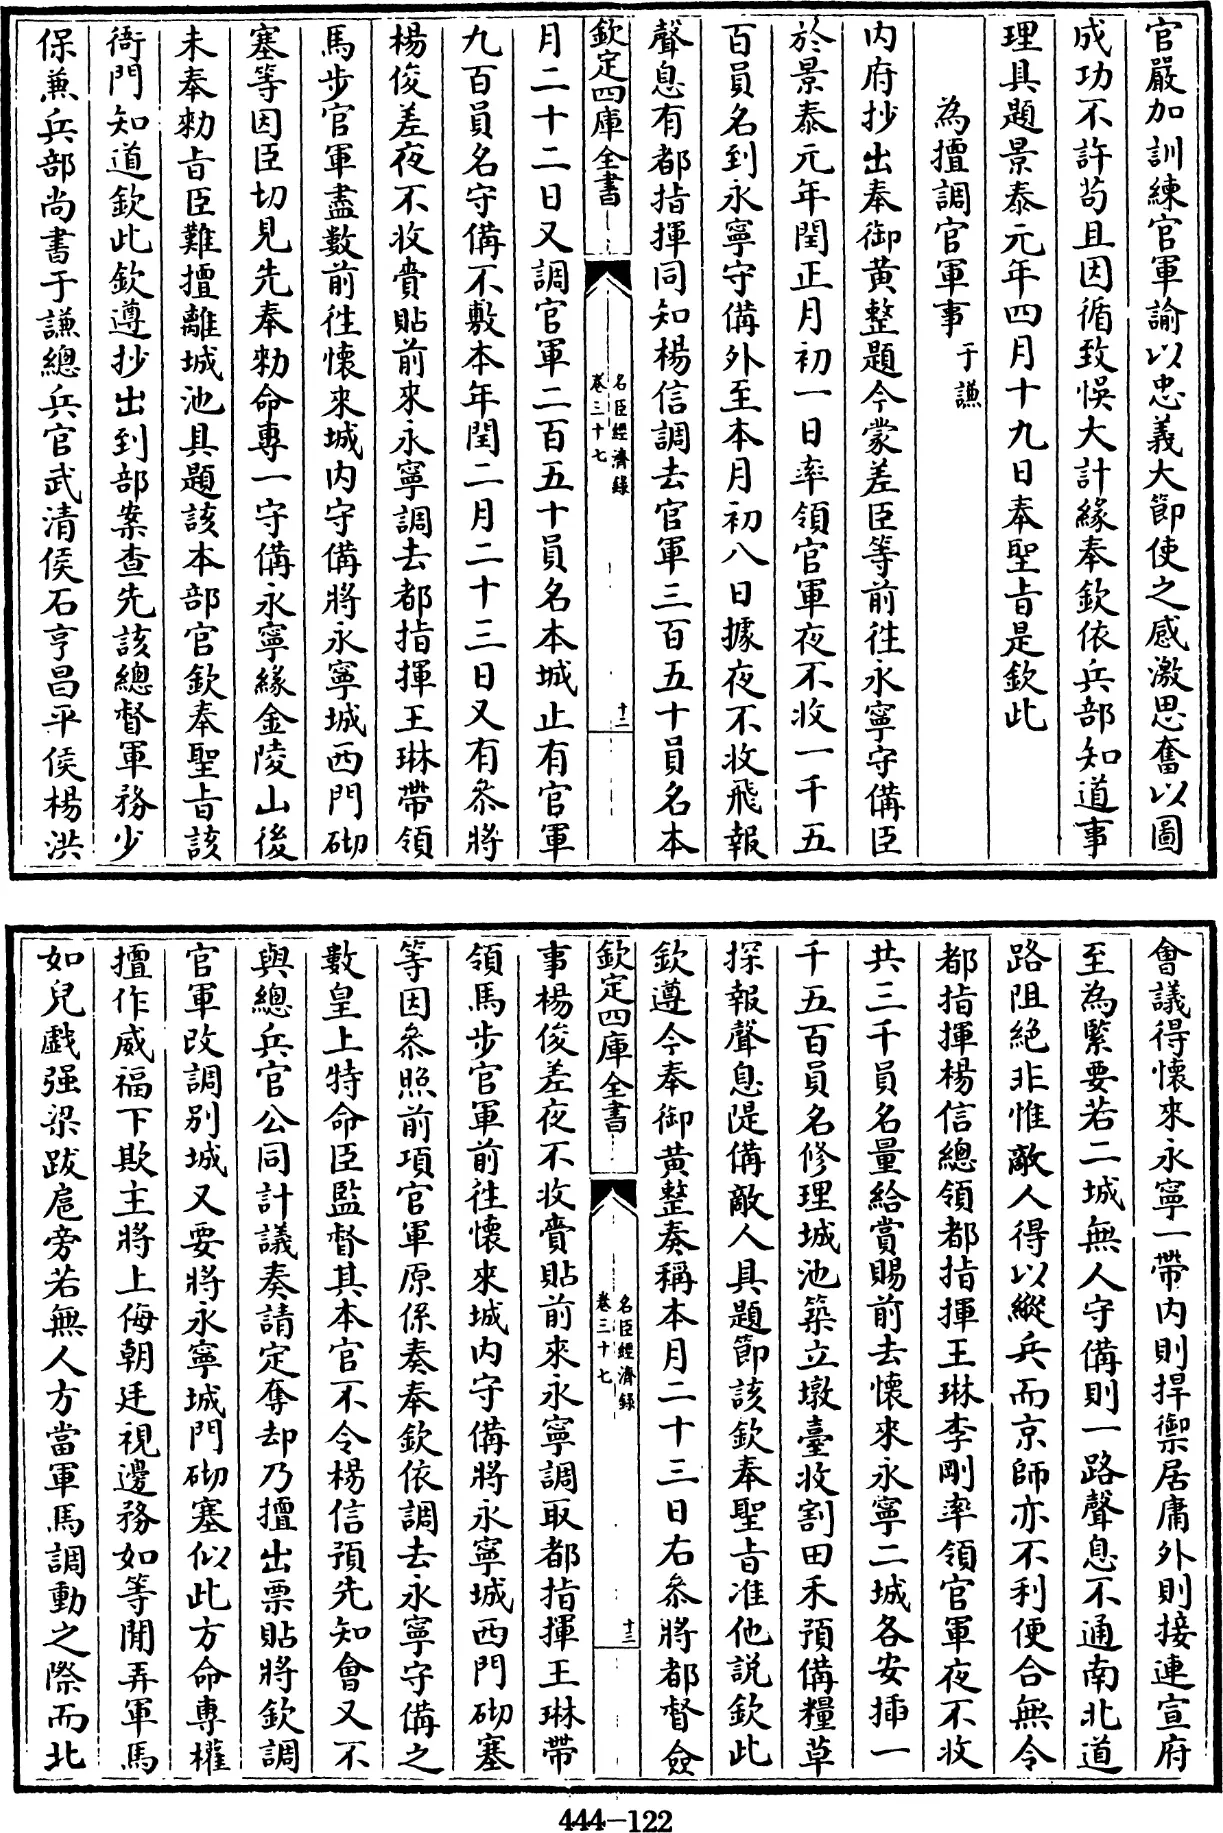 官嚴加訓練官軍諭以忠義大節使之感激思奮以圖
成功不許茍且因循致悞大計緣奉欽依兵部知道事
理具題景泰元年四月十九日奉聖旨是欽此
為擅調官軍事 于謙
内府抄出奉御黄整題今蒙差臣等前徃永寧守備臣
於景泰元年閏正月初一日率領官軍夜不收一千五
百員名到永寧守備外至本月初八日據夜不收飛報
聲息有都指揮同知楊信調去官軍三百五十員名本
欽定四庫全書
名臣經濟錄
卷三十七
十二
月二十二日又調官軍二百五十員名本城止有官軍
九百員名守備不敷本年閏二月二十三日又有叅將
楊俊差夜不收賫貼前來永寧調去都指揮王琳帶領
馬步官軍盡數前徃懷來城内守備將永寧城西門砌
塞等因臣切見先奉勑命專一守備永寧緣金陵山後
未奉勑旨臣難擅離城池具題該本部官欽奉聖旨該
衙門知道欽此欽遵抄出到部案查先該總督軍務少
保兼兵部尚書于謙總兵官武清侯石亨昌平侯楊洪
會議得懷來永寧一帶内則捍禦居庸外則接連宣府
至為緊要若二城無人守備則一路聲息不通南北道
路阻絶非惟敵人得以縱兵而京師亦不利便合無令
都指揮楊信總領都指揮王琳李剛率領官軍夜不收
共三千員名量給賞賜前去懷來永寧二城各安揷一
千五百員名修理城池築立墩臺收割田禾預備糧草
探報聲息隄備敵人具題節該欽奉聖旨准他説欽此
欽遵今奉御黄整奏稱本月二十三日右叅將都督僉
欽定四庫全書
名臣經濟錄
卷三十七
十三
事楊俊差夜不收賫貼前來永寧調取都指揮王琳帶
領馬步官軍前徃懷來城内守備將永寧城西門砌塞
等因叅照前項官軍原係奏奉欽依調去永寧守備之
數皇上特命臣監督其本官不令楊信預先知會又不
與總兵官公同計議奏請定奪却乃擅出票貼將欽調
官軍改調别城又要將永寧城門砌塞似此方命專權
擅作威福下欺主將上侮朝廷視邊務如等閒弄軍馬
如兒戯强梁跋扈旁若無人方當軍馬調動之際而北
444-122